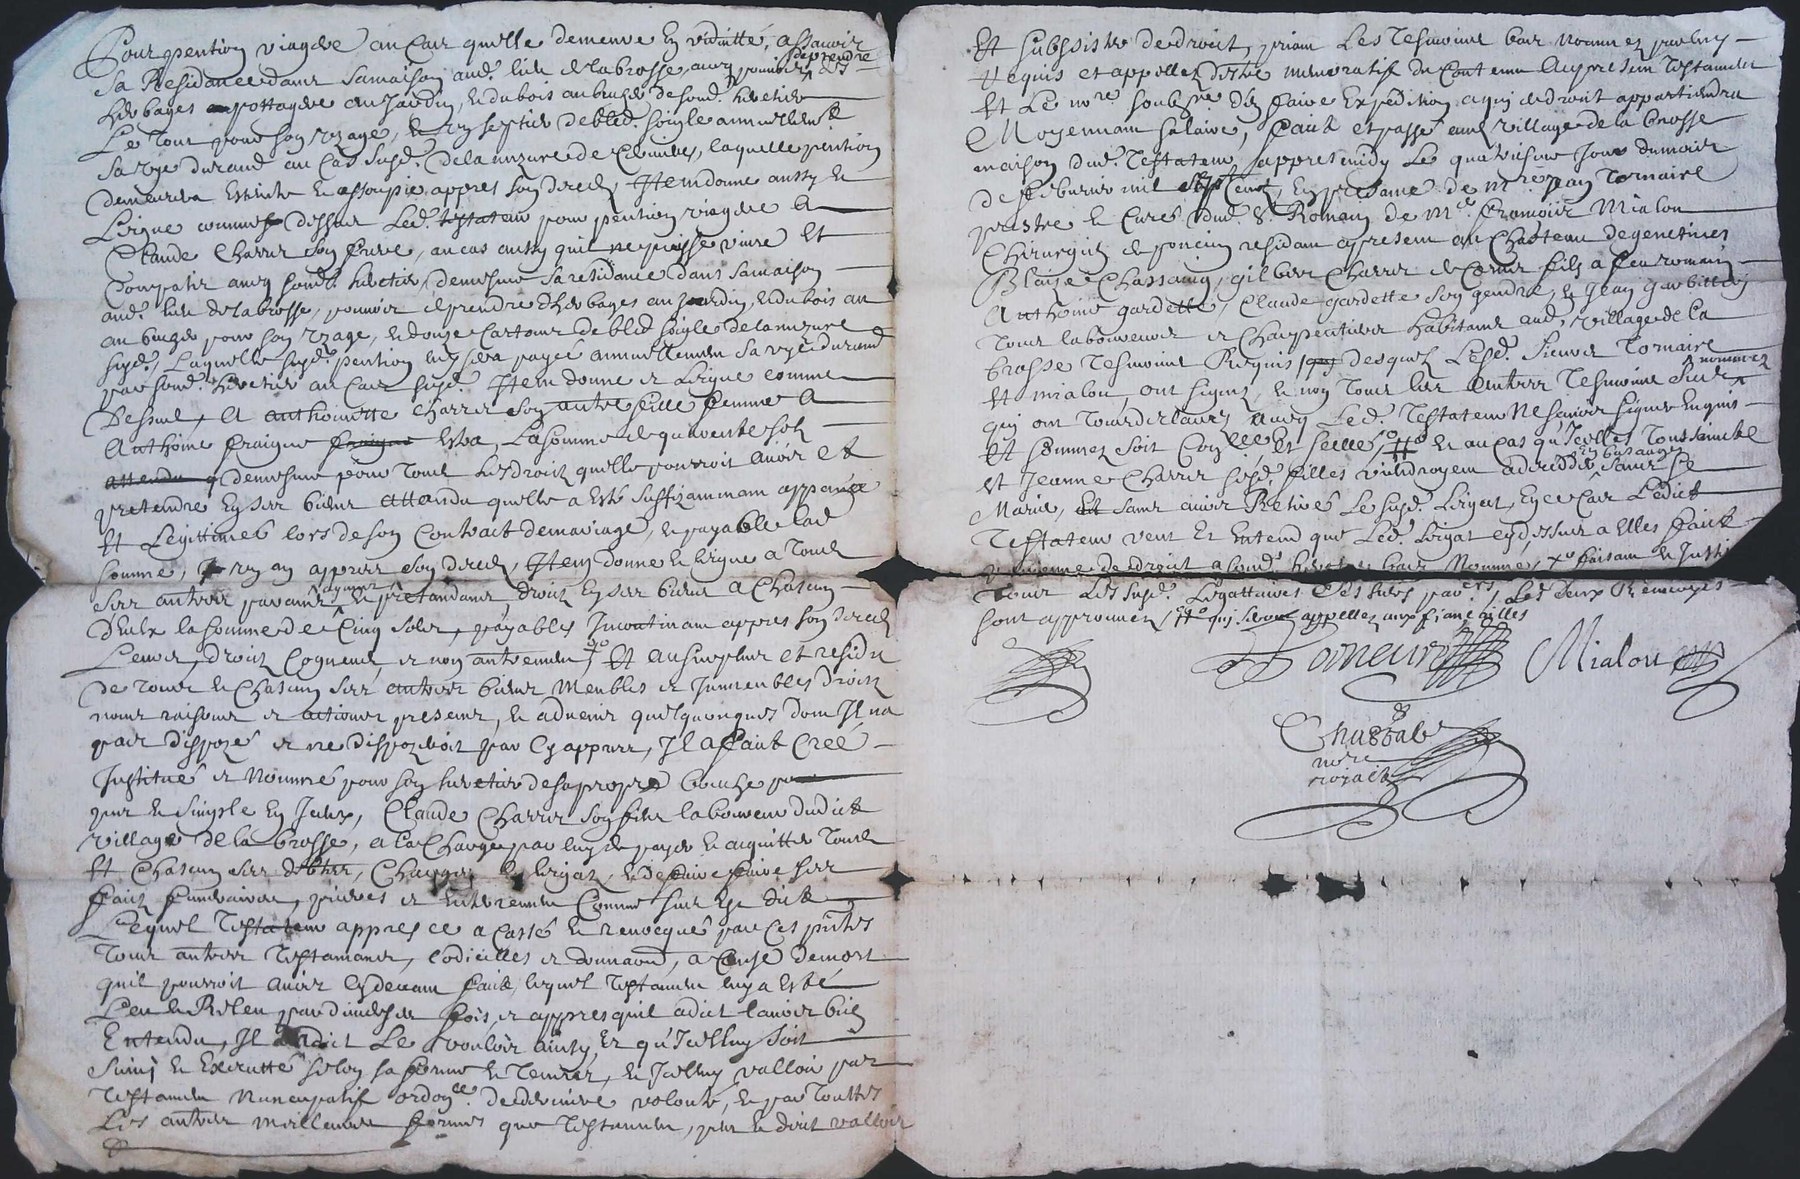 Pour pention viagere au cas quelle demeure en viduitté, assavoir
sa Residance dans sa maison aud. lieu de la brosse avec pouvoir de prendre des
herbages pottagere au Jardin, et du bois au bucher de sond. heretier
Le tout pour son uzage, et un septier de bled soigle annuellement
sa vye durand au cas susd. de la mezure de laquelle pention
demeurera esteinte et assoupie appres son deceds, Item donne aussy et
Legue comme dessus Led. testateur pour pention viagere a
Claude Charrer son frere, au cas aussy quil ne puisse vivre et
Compatir avec sond. heretier, demesme sa residance dans sa maison
aud. lieu de la brosse, pouvoir de prendre d'herbages au jardin, et du bois au
au bucher pour son uzage, et douze cartons de bled soigle de la mezure
susd. Laquelle susd. pention luy sera payée annuellement sa vye durand
par sond. heretier au cas susd. Item donne et Legue comme
Dessus, A anthoinette Charrer son autre fille femme A
Anthoine fraigne la somme de quarente sols
demesme pour tous les droits quelle pourroit avoir et
pretendre en ses biens attandu quelle a esté suffizammant appanée
Et Legittimée lors de son Contrait de mariage, et payable lad.
somme, un an appres son deceds, Item donne et legue a tous
ses autres parants et pretandants droits en ses biens a chascun
D'eux la somme de Cinq solz, payables Incontinam appres son deceds
Leurs droits Cogneus et non autrement Et au surplus et residu
de tous et chascun ses autres biens Meubles et Immeubles droits
noms raisons et actions presens, et advenir quelquonques dont Il na
pas dispozé et ne dispozeroit par cy appres, Il a fait Creé
Institué et Nommé pour son heretier de sa propre bouche
pur et simple en Iceux, Claude Charrer son fils laboureur dudict
village de la brosse, a la Charge par luy de payer et acquitter tous
Et Chascun ses debtes, Charges et legatz, et de faire faire ses
fraiz funeraires, prieres et enterrement Comme sus est dict
Lequel Testateur appres ce a Cassé et revocqué par ces pntes
tous autres Testamans, Codicilles et donnaons, a Cause de mort
quil pourroit avoir cy devant fait, lequel Testament luy a esté
Leu et Releu par diverses fois, et appres quil a dict lavoir bien
Entendu, Il a dit Le vouloir ainsy, et qu'Icelluy soit
suivy et Executté selon sa forme et teneur, et Icelluy valloir par
Testament Nuncupatif ordonce. de derniere volonté, et par touttes
Les autres meilleures formes que Testament, peut et doit valloir
Et subsister de droict, priant Les tesmoins bas nommez par luy
Requis et appellez d'estre memoratif du Contenu au present Testament
Et Le nore. soubsné d'en faire Expedition a qui de droit appartiendra
Moyennant salaire, fait et passé aud. village de la brosse
maison dud. Testateur, appres midy Le quatriesme Jour du mois
de feburier mil sept cent, En presance de mre Jean Tornaire
prestre et Curé dud. St Romain de Me. François Mialon
Chirurgien de poncins residant a present au Chasteau de genetines
Blaise Chassaing, gilbert Charrer de Cornet fils a feu romain
Anthoine gardette, Claude gardette son gendre, et Jean
tous laboureurs et Charpentiers habitans aud. village de la
brosse tesmoins Requis desquels Lesd. sieurs Tornaire
Et mialon, ont signez, et non tous les autres tesmoins sus nommez
qui ont touts declarez avec Led. Testateur Ne scavoir signer Enquis
Et sommez soit Conllé. Et scellé, et au cas qu'Icelles Toussainte
et Jeanne Charrer susd. filles vindroyent a decedder en bas aages sans se
Marier, sans avoir Retiré Le susd. Legat, En ce Cas Ledict
Testateur veut et Entend que Led. Legat cy dessus a Elles fait
de droit a sond. heretier bas Nommé, faisant et
tous Les susd. Legattaires Les deux Renvoyes
sont approuvez qui seront appellez
Tornaire Mialon
Chassal
nore
royail